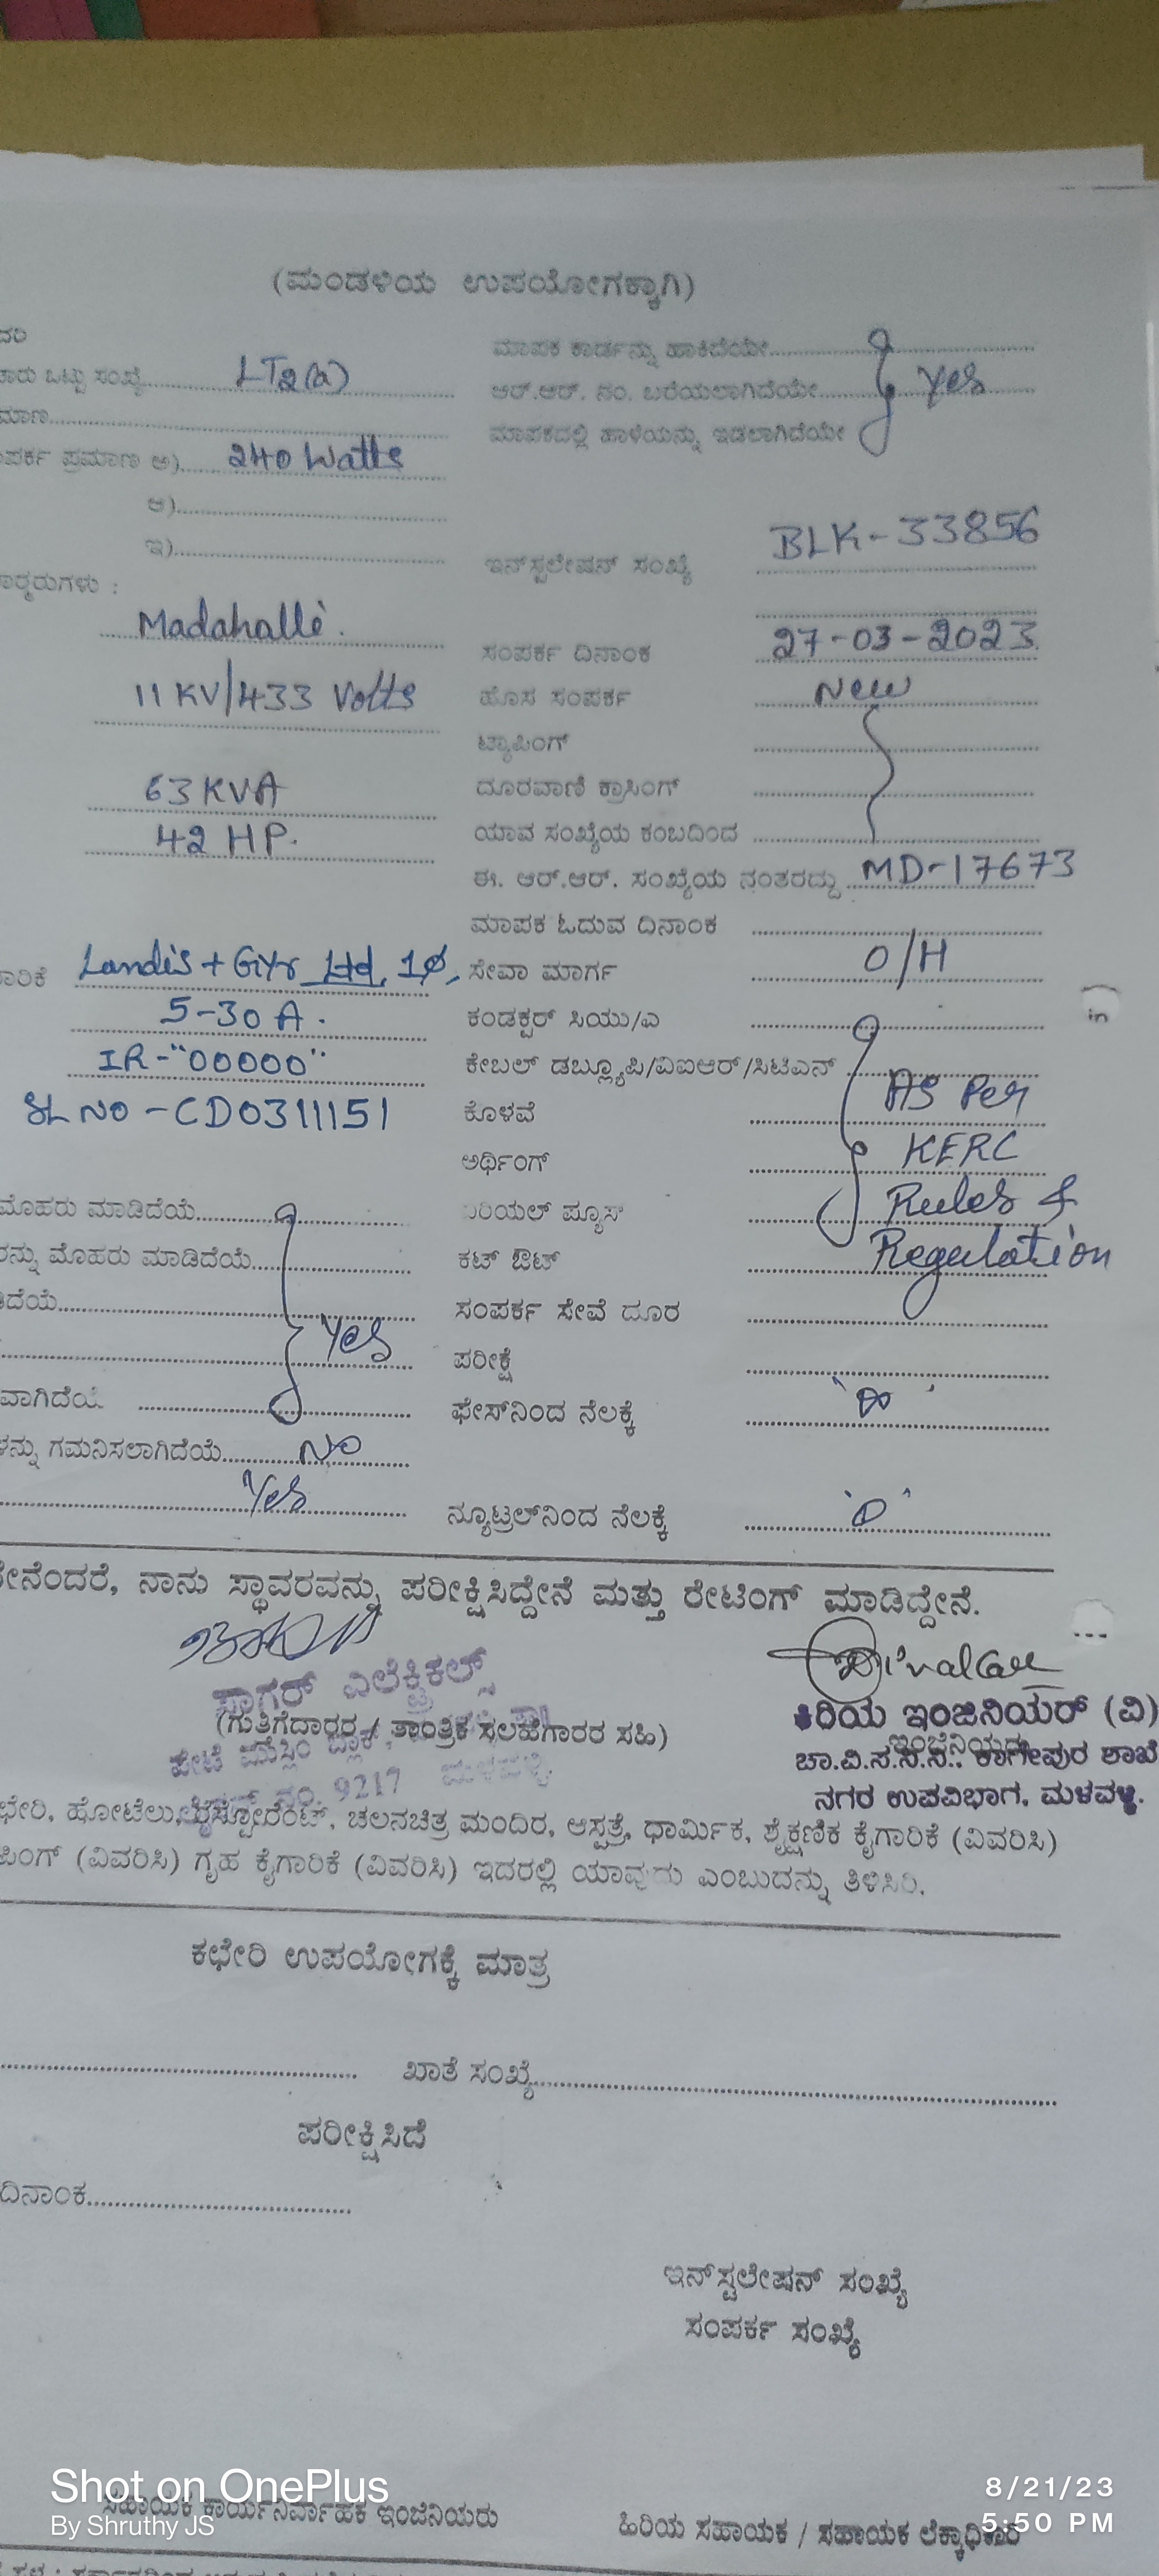 (ಮಂಡಳಿಯ ಉಪಯೋಗಕ್ಕಾಗಿ)
ಮಾಪಕ ಕಾರ್ಡನ್ನು ಹಾಕಿದೆಯೇ
ಒಟ್ಟು ಸಂಖ್ಯೆ LT2(a) ಆರ್.ಆರ್. ನಂ. ಬರೆಯಲಾಗಿದೆಯೇ Yes
ಮಾಪಕದಲ್ಲಿ ಹಾಳೆಯನ್ನು ಇಡಲಾಗಿದೆಯೇ
ಪ್ರಮಾಣ ಅ) 240 Watts
ಆ)
ಇ) ಇನ್‌ಸ್ಟಲೇಷನ್ ಸಂಖ್ಯೆ BLK-33856
Madahalli. ಸಂಪರ್ಕ ದಿನಾಂಕ 27-03-2023.
11 KV/433 Volts ಹೊಸ ಸಂಪರ್ಕ New
ಟ್ಯಾಪಿಂಗ್
63 KVA ದೂರವಾಣಿ ಕ್ರಾಸಿಂಗ್
42 HP. ಯಾವ ಸಂಖ್ಯೆಯ ಕಂಬದಿಂದ
ಈ. ಆರ್.ಆರ್. ಸಂಖ್ಯೆಯ ನಂತರದ್ದು MD-17673
ಮಾಪಕ ಓದುವ ದಿನಾಂಕ
Landis + Gyr Ltd, 1Ø, ಸೇವಾ ಮಾರ್ಗ O/H
5-30 A. ಕಂಡಕ್ಟರ್ ಸಿಯು/ಎ
IR-"00000" ಕೇಬಲ್ ಡಬ್ಲ್ಯೂಪಿ/ವಿಐಆರ್/ಸಿಟಿಎನ್
SL NO - CD0311151 ಕೊಳವೆ As Per
ಅರ್ಥಿಂಗ್ KERC
ಮೊಹರು ಮಾಡಿದೆಯೆ ಏರಿಯಲ್ ಫ್ಯೂಸ್ Rules &
ಮೊಹರು ಮಾಡಿದೆಯೆ ಕಟ್ ಔಟ್ Regulation
ಸಂಪರ್ಕ ಸೇವೆ ದೂರ
Yes ಪರೀಕ್ಷೆ
ಫೇಸ್‌ನಿಂದ ನೆಲಕ್ಕೆ
ಗಮನಿಸಲಾಗಿದೆಯೆ No
Yes ನ್ಯೂಟ್ರಲ್‌ನಿಂದ ನೆಲಕ್ಕೆ '0'
ನಾನು ಸ್ಥಾವರವನ್ನು ಪರೀಕ್ಷಿಸಿದ್ದೇನೆ ಮತ್ತು ರೇಟಿಂಗ್ ಮಾಡಿದ್ದೇನೆ.
ಸಾಗರ್ ಎಲೆಕ್ಟ್ರಿಕಲ್ಸ್
(ಗುತ್ತಿಗೆದಾರರ / ತಾಂತ್ರಿಕ ಸಲಹೆಗಾರರ ಸಹಿ)
ಪೇಟೆ ಮುಸ್ಲಿಂ ಬ್ಲಾಕ್
ನಂ. 9217 ಮಳವಳ್ಳಿ
ಕಿರಿಯ ಇಂಜಿನಿಯರ್ (ವಿ)
ಇಂಜಿನಿಯರು
ಚಾ.ವಿ.ಸ.ನಿ.ನಿ.. ಕಾಗೇಪುರ ಶಾಖೆ
ನಗರ ಉಪವಿಭಾಗ, ಮಳವಳ್ಳಿ.
ಹೋಟೆಲು, ರೆಸ್ಟೋರೆಂಟ್, ಚಲನಚಿತ್ರ ಮಂದಿರ, ಆಸ್ಪತ್ರೆ, ಧಾರ್ಮಿಕ, ಶೈಕ್ಷಣಿಕ ಕೈಗಾರಿಕೆ (ವಿವರಿಸಿ)
(ವಿವರಿಸಿ) ಗೃಹ ಕೈಗಾರಿಕೆ (ವಿವರಿಸಿ) ಇದರಲ್ಲಿ ಯಾವುದು ಎಂಬುದನ್ನು ತಿಳಿಸಿರಿ.
ಕಛೇರಿ ಉಪಯೋಗಕ್ಕೆ ಮಾತ್ರ
ಖಾತೆ ಸಂಖ್ಯೆ
ಪರೀಕ್ಷಿಸಿದೆ
ದಿನಾಂಕ
ಇನ್‌ಸ್ಟಲೇಷನ್ ಸಂಖ್ಯೆ
ಸಂಪರ್ಕ ಸಂಖ್ಯೆ
Shot on OnePlus
By Shruthy JS
8/21/23
5:50 PM
ಸಹಾಯಕ ಕಾರ್ಯನಿರ್ವಾಹಕ ಇಂಜಿನಿಯರು
ಹಿರಿಯ ಸಹಾಯಕ / ಸಹಾಯಕ ಲೆಕ್ಕಾಧಿಕಾರಿ